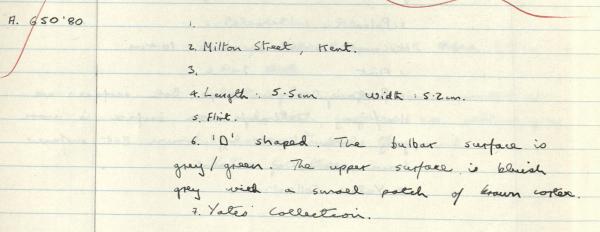 A. GSO'80
1.
2. Milton Street, Kent.
3.
4. Length: 5.5cm Width: 5.2cm.
5. Flint.
6. 'D' shaped. The bulbar surface is
grey/green. The upper surface is bluish
grey with a small patch of brown cortex.
7. Yates' Collection.